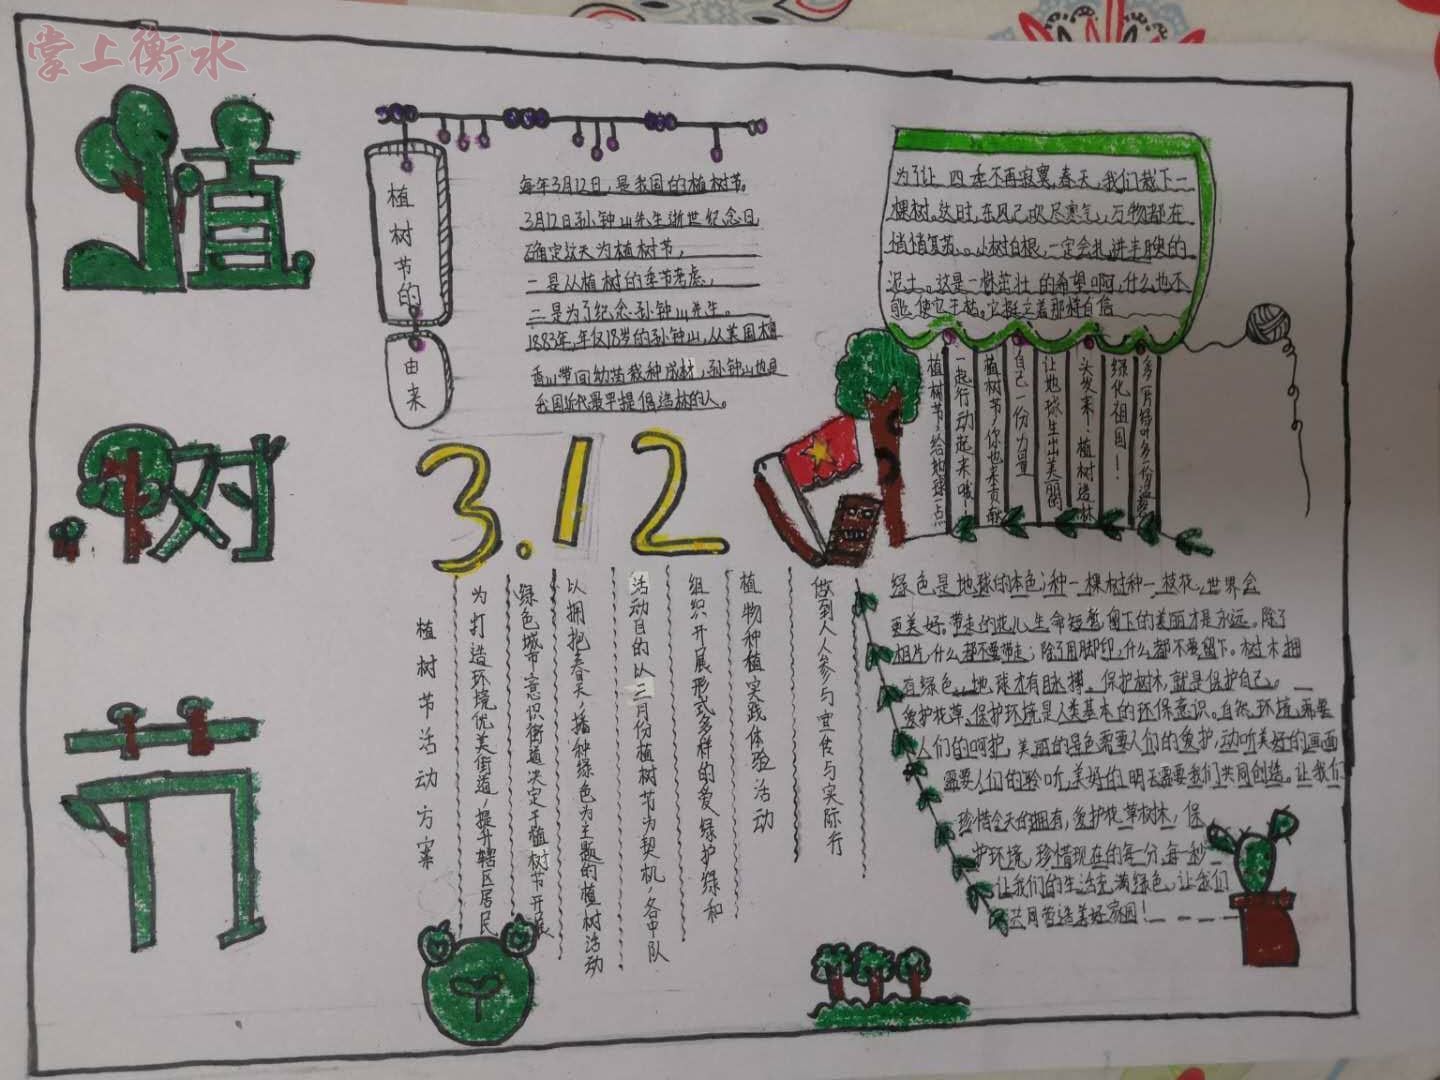 掌上衡水
植
树
节
植树节的
由来
每年3月12日,是我国的植树节。
3月12日孙钟山先生逝世纪念日
确定这天为植树节,
一是从植树的季节考虑,
二是为了纪念孙钟山先生。
1883年,年仅18岁的孙钟山,从美国檀
香山带回幼苗栽种成材,孙钟山也是
我国近代最早提倡造林的人。
为了让四季不再寂寞,春天,我们栽下一
棵树。这时,东风已吹尽寒气,万物都在
悄悄复苏。小树白根,一定会扎进丰腴的
泥土。这是一株茁壮的希望啊,什么也不
能使它干枯。它挺立着那样自信
植树节,给地球一点
一起行动起来哦!
植树节,你也来贡献
自己一份力量
让地球生出美丽
头发来!植树造林
绿化祖国!
多一片绿叶,多一份温馨
3.12
植树节活动方案
为打造环境优美街道,提升辖区居民
绿色城市意识街道决定于植树节开展
以拥抱春天,播种绿色为主题的植树活动
活动目的以三月份植树节为契机,各中队
组织开展形式多样的爱绿护绿和
植物种植实践体验活动
做到人人参与宣传与实际行
绿色是地球的本色;种一棵树种一枝花,世界会
更美好。带走的花儿生命短暂,留下的美丽才是永远。除了
相片,什么都不要带走;除了用脚印,什么都不要留下。树木拥
有绿色,地球才有脉搏。保护树木,就是保护自己。
爱护花草、保护环境是人类基本的环保意识。自然环境需要
人们的呵护,美丽的景色需要人们的爱护,动听美好的画面
需要人们的聆听,美好的明天需要我们共同创造。让我们
珍惜今天的拥有,爱护花草树木,保
护环境,珍惜现在的每一分,每一秒
让我们的生活充满绿色,让我们
共同营造美好家园!